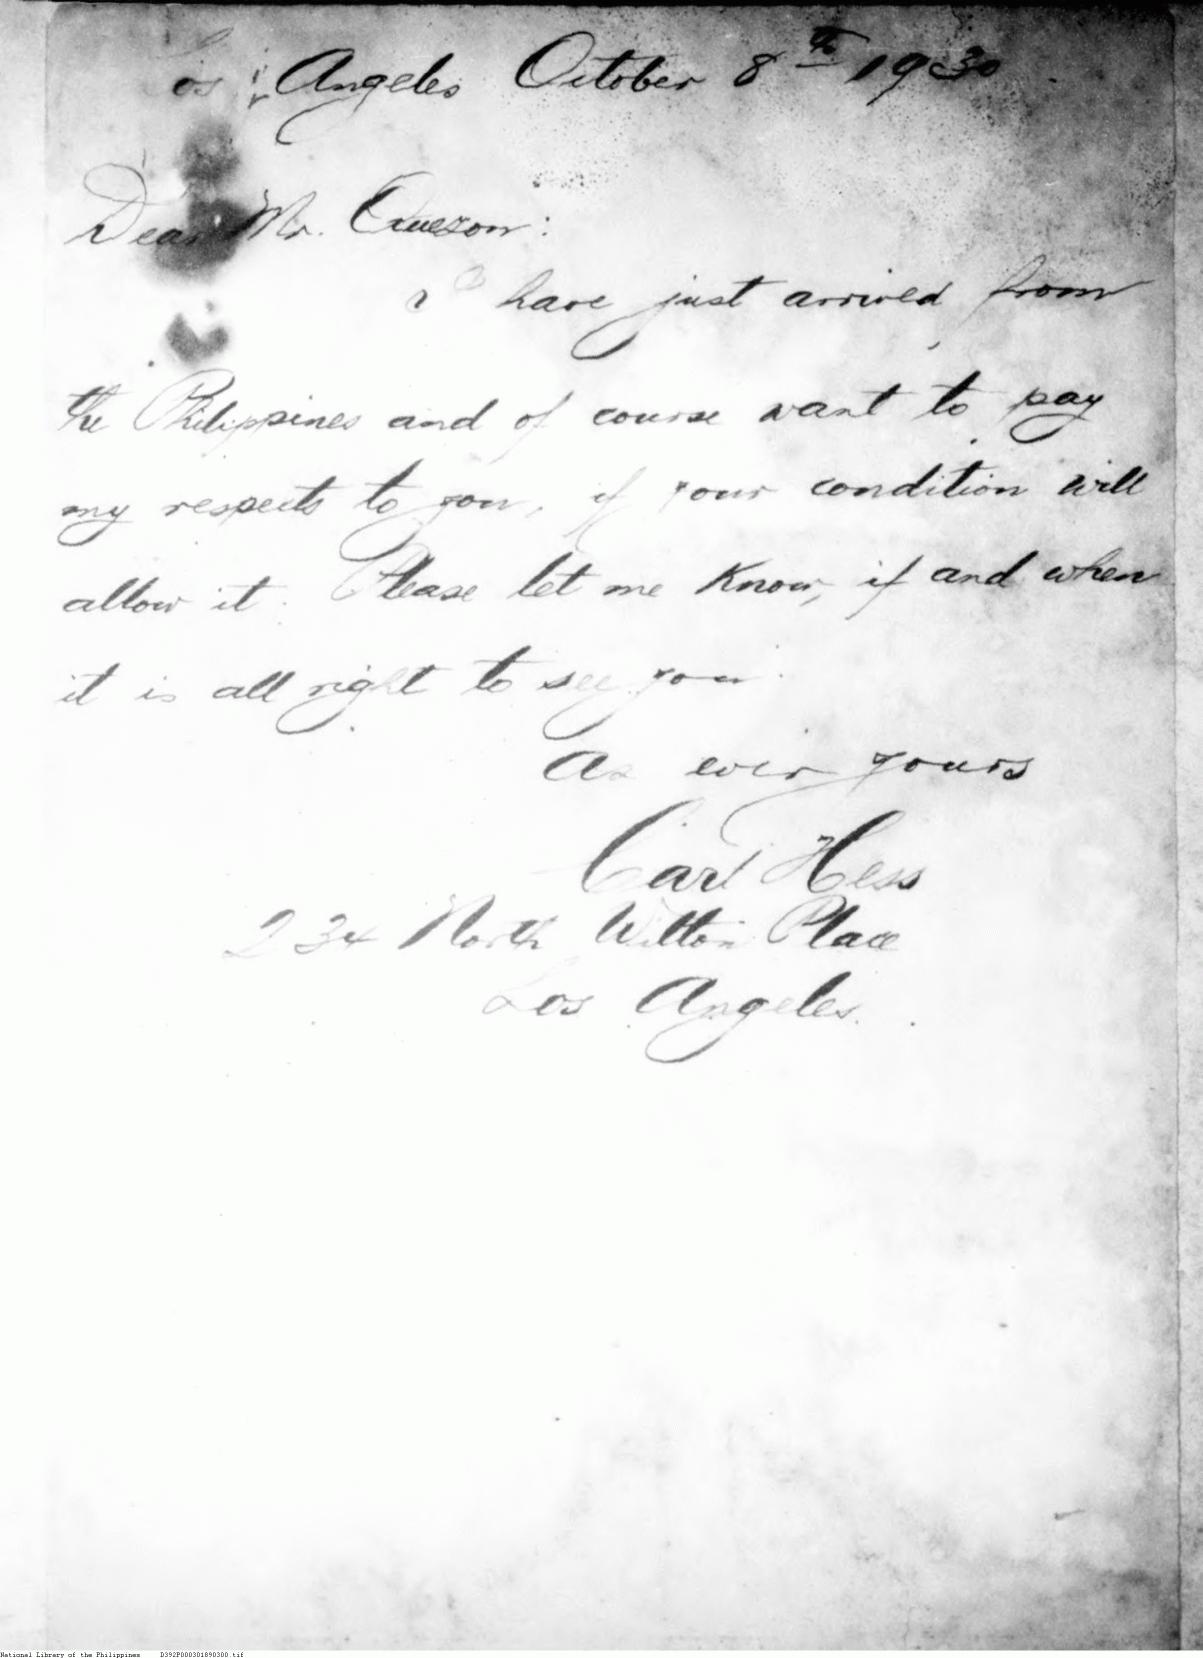 Los Angeles October 8th 1930
Dear Mr. Quezon:
I have just arrived from
the Philippines and of course want to pay
my respects to you, if your condition will
allow it. Please let me know, if and when
it is all right to see you.
As ever yours
Carl Hess
234 North Wilton Place
Los Angeles.
National Library of the Philippines D392P000301890300.tif